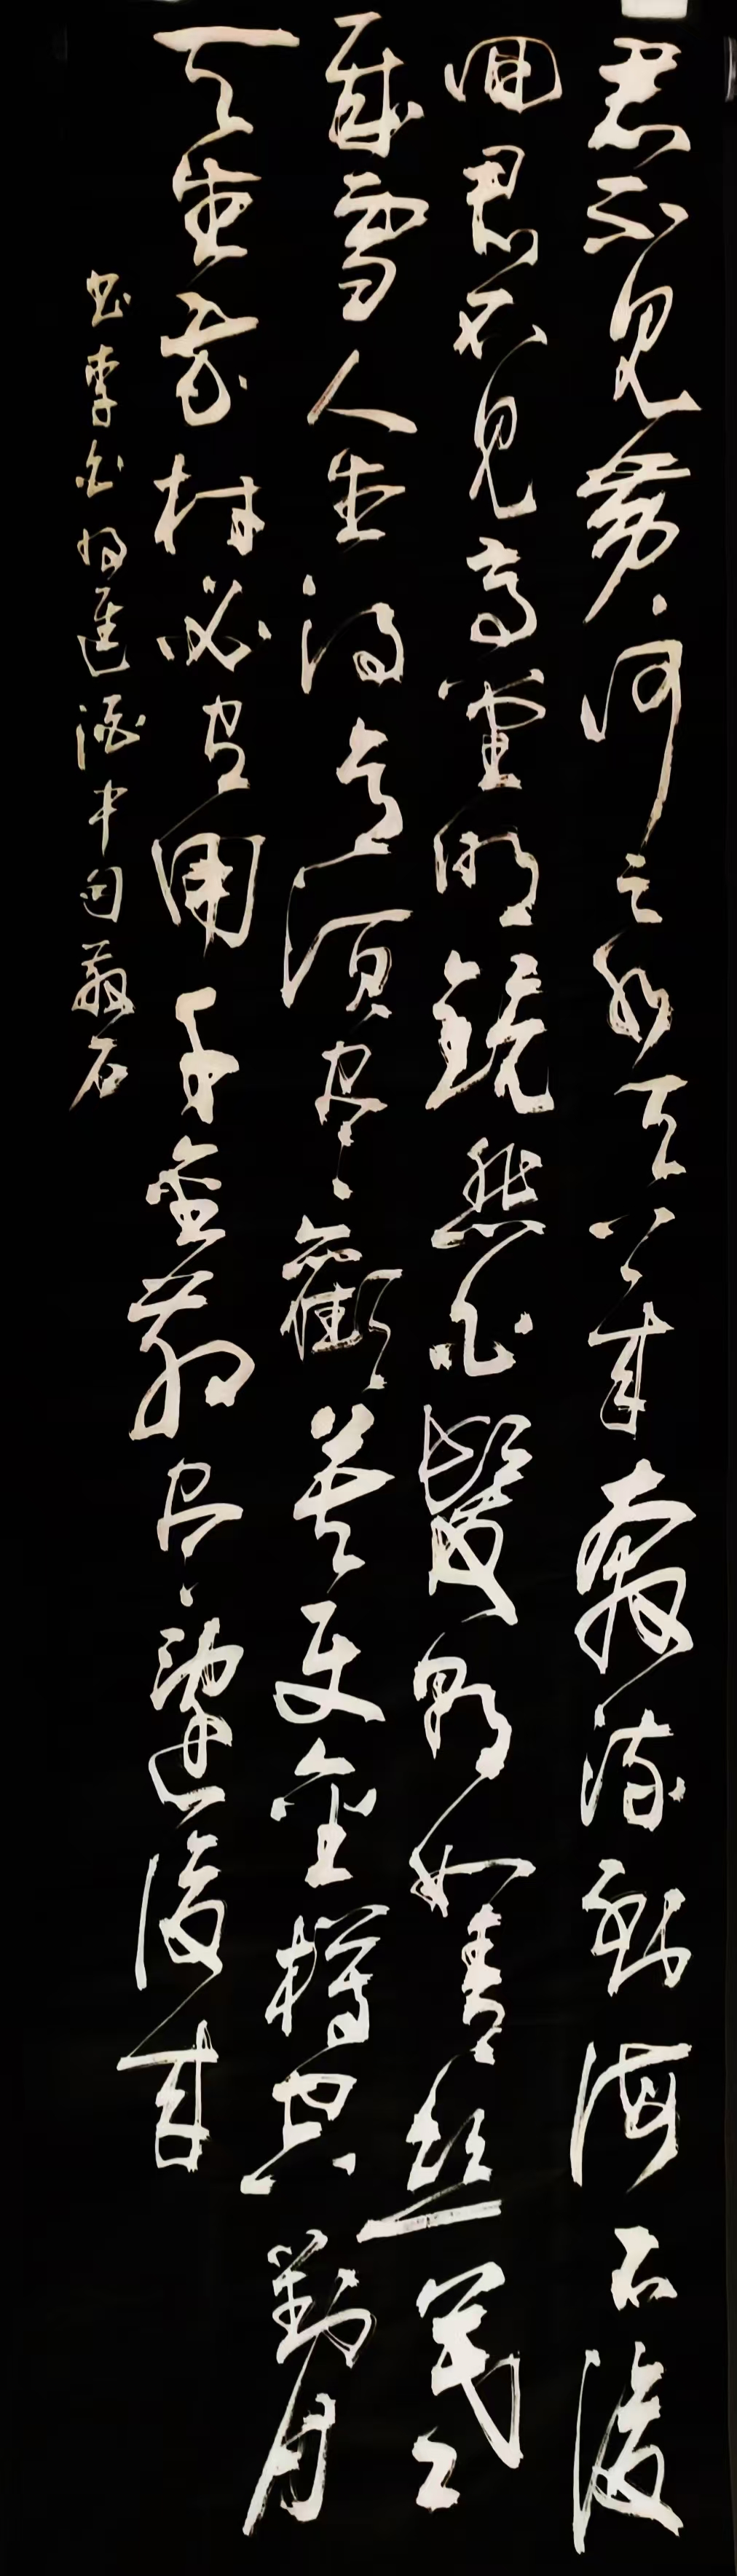 君不見黄河之水天上来奔流到海不復
回君不見高堂明鏡悲白髮朝如青丝暮
成雪人生得意須尽歡莫使金樽空對月
天生我材必有用千金散尽還復来
书李白将進酒中句